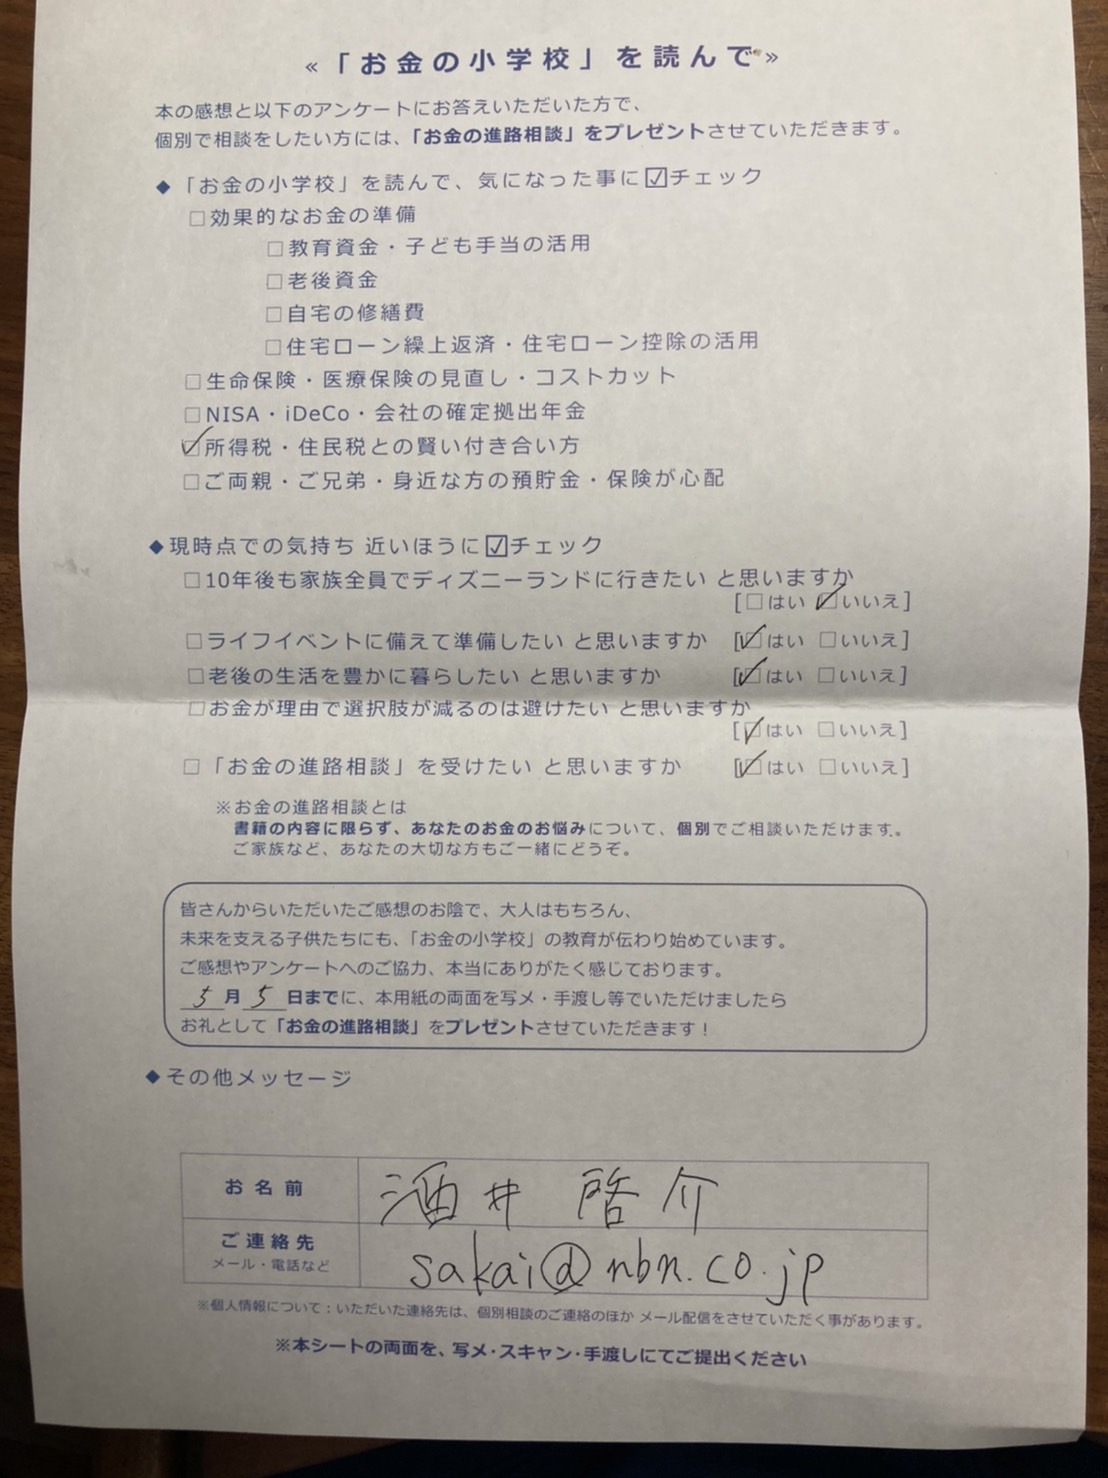 «「お金の小学校」を読んで»
本の感想と以下のアンケートにお答えいただいた方で、
個別で相談をしたい方には、「お金の進路相談」をプレゼントさせていただきます。
◆「お金の小学校」を読んで、気になった事に☑チェック
□効果的なお金の準備
□教育資金・子ども手当の活用
□老後資金
□自宅の修繕費
□住宅ローン繰上返済・住宅ローン控除の活用
□生命保険・医療保険の見直し・コストカット
□NISA・iDeCo・会社の確定拠出年金
☑所得税・住民税との賢い付き合い方
□ご両親・ご兄弟・身近な方の預貯金・保険が心配
◆現時点での気持ち 近いほうに☑チェック
□10年後も家族全員でディズニーランドに行きたい と思いますか
[□はい ☑いいえ]
□ライフイベントに備えて準備したい と思いますか [☑はい □いいえ]
□老後の生活を豊かに暮らしたい と思いますか [☑はい □いいえ]
□お金が理由で選択肢が減るのは避けたい と思いますか
[☑はい □いいえ]
□「お金の進路相談」を受けたい と思いますか [☑はい □いいえ]
※お金の進路相談とは
書籍の内容に限らず、あなたのお金のお悩みについて、個別でご相談いただけます。
ご家族など、あなたの大切な方もご一緒にどうぞ。
皆さんからいただいたご感想のお陰で、大人はもちろん、
未来を支える子供たちにも、「お金の小学校」の教育が伝わり始めています。
ご感想やアンケートへのご協力、本当にありがたく感じております。
5月5日までに、本用紙の両面を写メ・手渡し等でいただけましたら
お礼として「お金の進路相談」をプレゼントさせていただきます！
◆その他メッセージ
お名前 酒井 啓介
ご連絡先 sakai@nbn.co.jp
メール・電話など
※個人情報について：いただいた連絡先は、個別相談のご連絡のほか メール配信をさせていただく事があります。
※本シートの両面を、写メ・スキャン・手渡しにてご提出ください